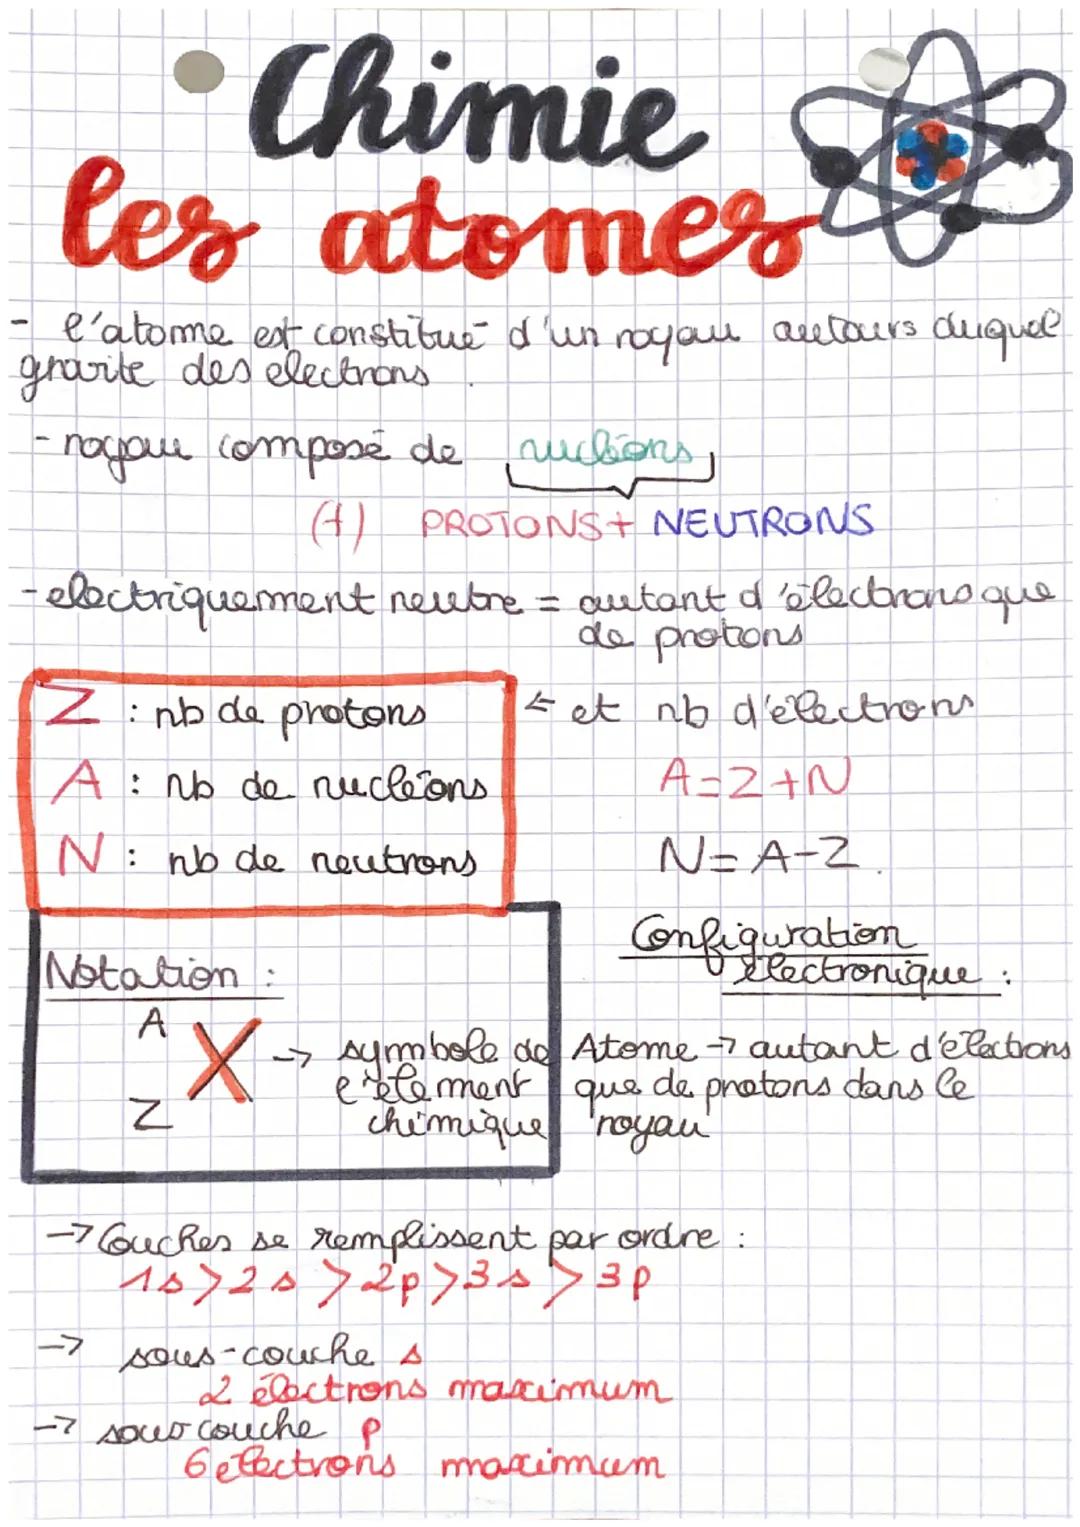 Chimie
les atomes
- l'atome est constitué d'un noyau autours duquel
gravite des electrons.
- noyau composé de nucléons
(+) PROTONS + NEUTRONS
- electriquement neutre = autant d'électrons que
de protons
Z : nb de protons ← et nb d'électrons
A : nb de nucléons A=Z+N
N : nb de neutrons N=A-Z.
Configuration
électronique :
Notation :
A
X → symbole de
l'élément
chimique
Z
Atome → autant d'électrons
que de protons dans le
noyau
→ Couches se remplissent par ordre :
1s > 2s > 2p > 3s > 3p
→ sous-couche s
2 électrons maximum
→ sous couche p
6 electrons maximum